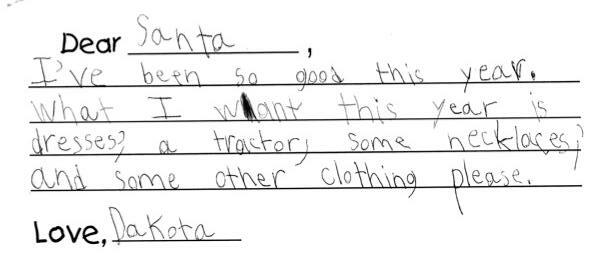 Dear Santa,
I've been so good this year.
What I want this year is
dresses, a tractor, some necklaces,
and some other clothing please.
Love, Dakota